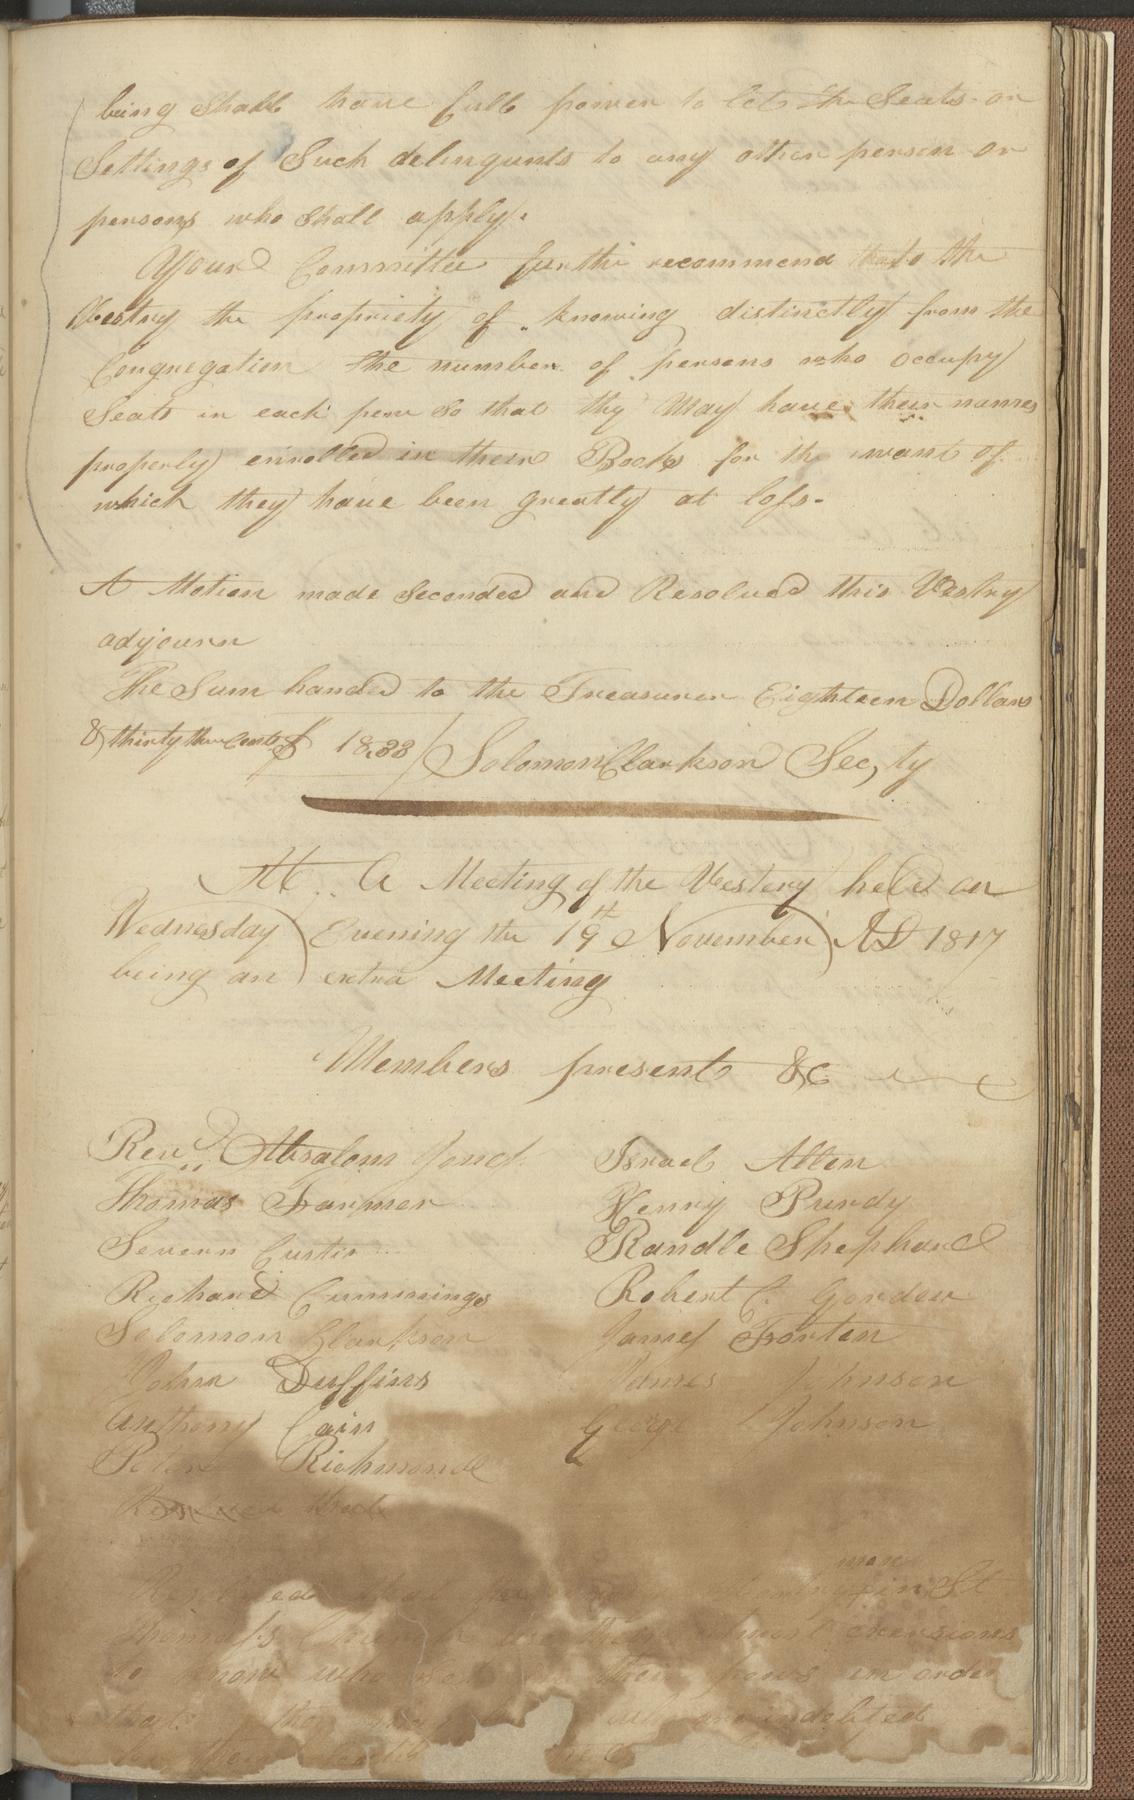 being Shall have full power to let the Seats or
Settings of Such delinqunts to any other person or
persons who Shall apply.
Your Committee further recommend to the
Vestry the propriety of knowing distinctly from the
Congregation the number of persons who occupy
Seats in each pew So that thy May have their names
properly enrolled in their Books for the want of
which they have been greatly at loss-
A Motion made Seconded and Resolved this Vestry
adjourn
The Sum handed to the Treasurer Eighteen Dollars
& thirty three Cents $ 18.33 / Solomon Clarkson Sec,ty
At A Meeting of the Vestery held on
Wednesday Evening the 19th November AD 1817
being an extra Meeting
Members present &c
Revd Absalom Jones
Thomas Farmer
Severn Curtis
Richard Cummings
Solomon Clarkson
John Duffins
Anthony Cain
Peter Richmond
Israel Allen
Henry Purdy
Randle Shephard
Robert C. Gordon
James Forten
James Johnson
George Johnson
man
Resolved that in St
Thomas's Church use their utmost exersions
to know who their pews in order
that they may who are indebted